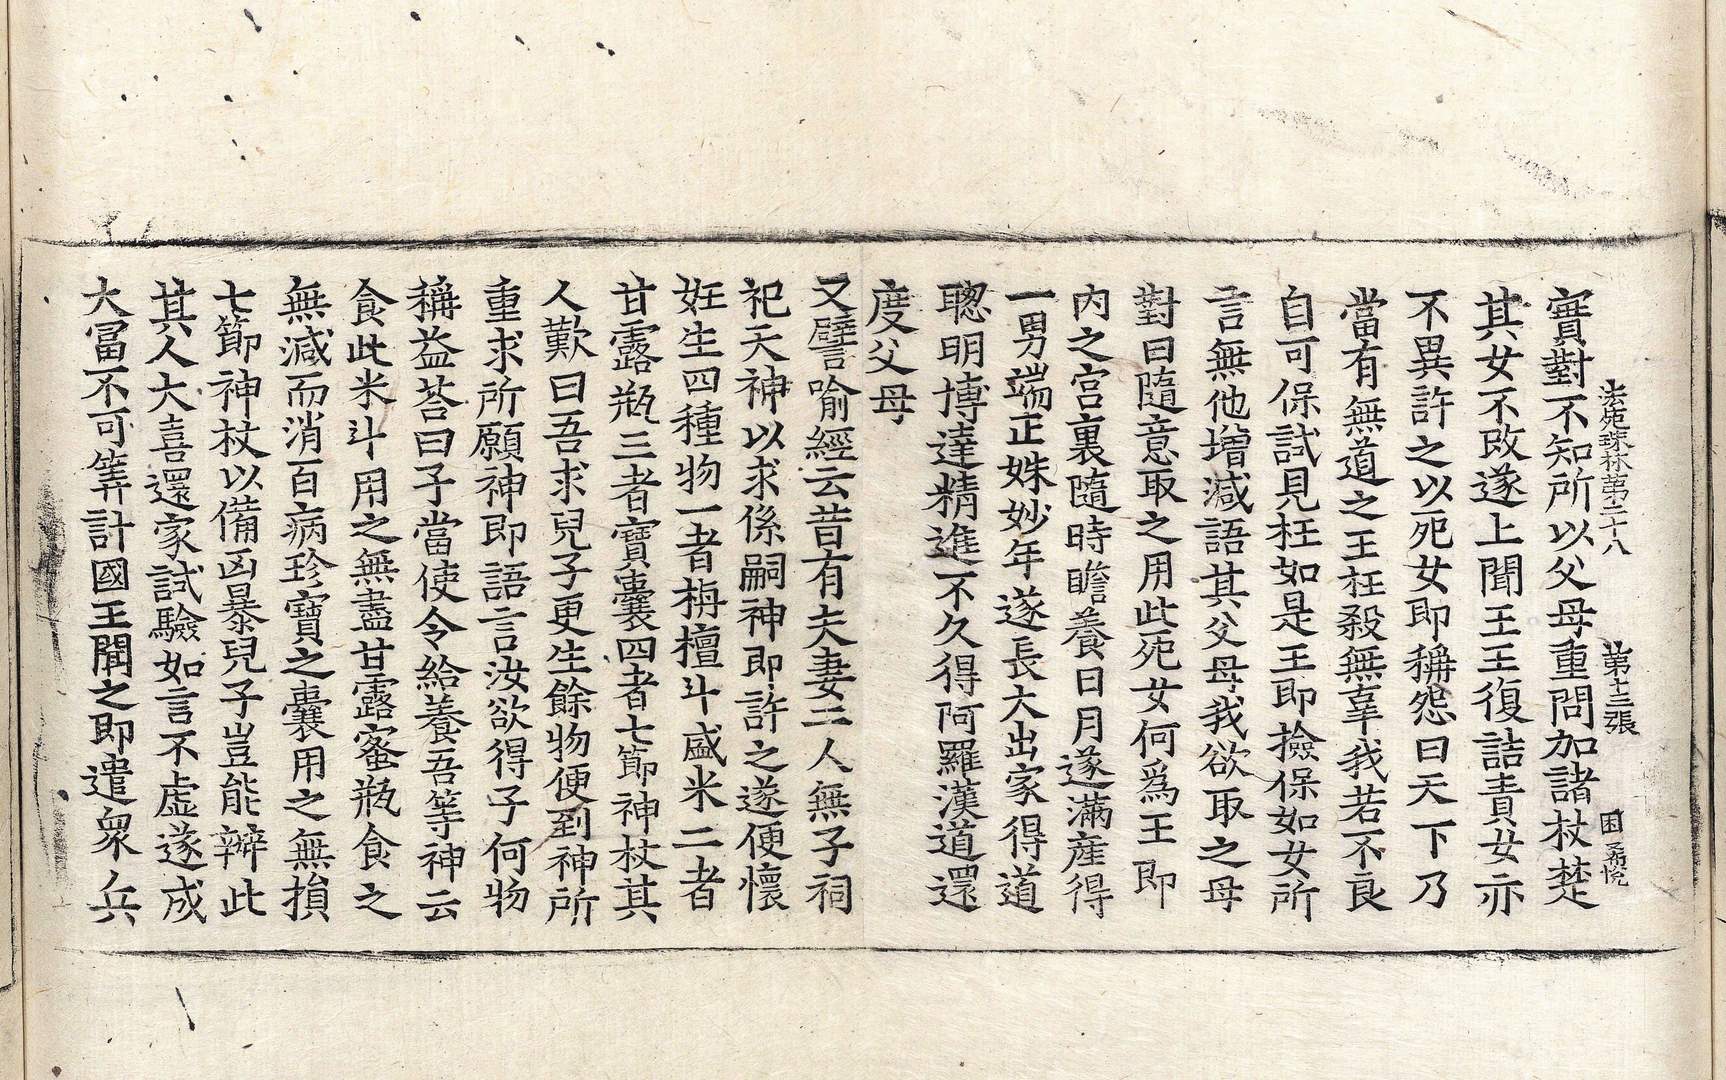 實對不知所以父母重問加諸杖楚
法苑珠林第二十八 第十三張 困
其女不改遂上聞王王復詰責女亦
不異許之以死女即稱怨曰天下乃
當有無道之王枉殺無辜我若不良
自可保試見枉如是王即撿保如女所
言無他增減語其父母我欲取之母
對曰隨意取之用此死女何爲王即
內之宮裏隨時瞻養日月遂滿産得
一男端正姝妙年遂長大出家得道
聰明博達精進不久得阿羅漢道還
度父母
又譬喻經云昔有夫妻二人無子祠
祀天神以求係嗣神即許之遂便懷
妊生四種物一者栴檀斗盛米二者
甘露瓶三者寶囊四者七節神杖其
人歎曰吾求兒子更生餘物便到神所
重求所願神即語言汝欲得子何物
稱益荅曰子當使令給養吾等神云
食此米斗用之無盡甘露蜜瓶食之
無減而消百病珍寶之囊用之無損
七節神杖以備凶暴兒子豈能辯此
其人大喜還家試驗如言不虛遂成
大冨不可筭計國王聞之即遣衆兵